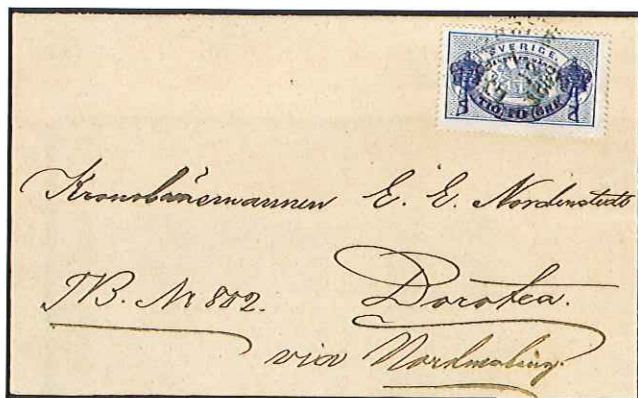 SVERIGE.
Kronolänsmannen E. E. Nordenstedt
TB. Nr 802. Dorotea.
via Nordmaling.